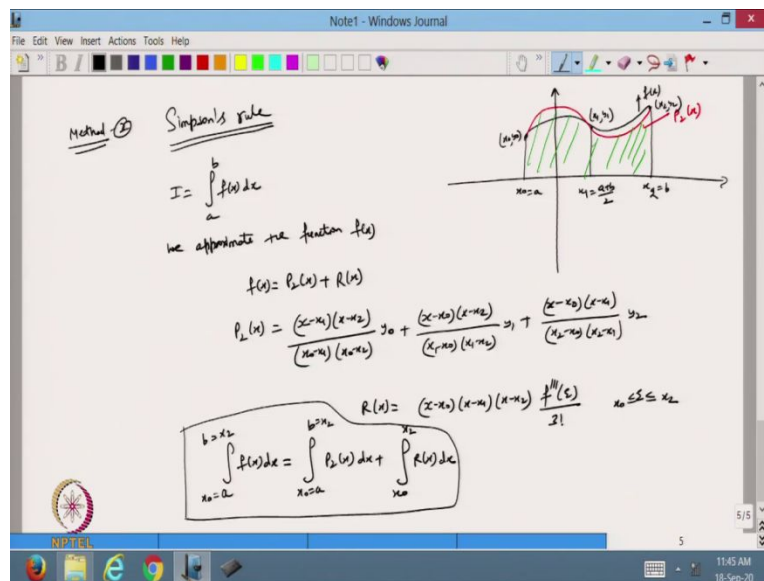 Note1 - Windows Journal
File Edit View Insert Actions Tools Help
B I
Method - ② Simpson's rule
I = ∫_a^b f(x) dx
we approximate the function f(x)
f(x) = P₂(x) + R(x)
P₂(x) = (x-x₁)(x-x₂)/(x₀-x₁)(x₀-x₂) y₀ + (x-x₀)(x-x₂)/(x₁-x₀)(x₁-x₂) y₁ + (x-x₀)(x-x₁)/(x₂-x₀)(x₂-x₁) y₂
R(x) = (x-x₀)(x-x₁)(x-x₂) f'''(ξ)/3! x₀ ≤ ξ ≤ x₂
∫_{x₀=a}^{b=x₂} f(x) dx = ∫_{x₀=a}^{b=x₂} P₂(x) dx + ∫_{x₀}^{x₂} R(x) dx
f(x)
(x₀,y₀) (x₁,y₁) (x₂,y₂)
P₂(x)
x₀=a x₁=a+b/2 x₂=b
NPTEL
5/5
5
11:45 AM
18-Sep-20